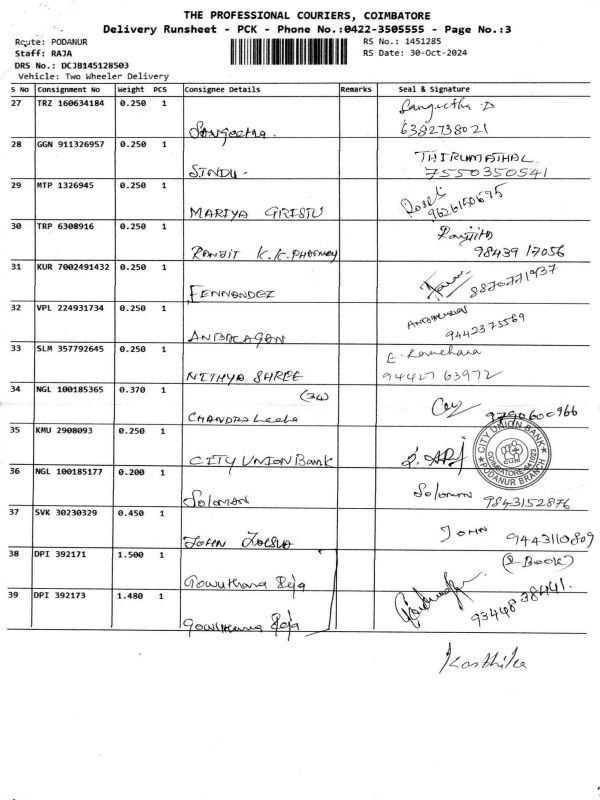 THE PROFESSIONAL COURIERS, COIMBATORE
Delivery Runsheet - PCK - Phone No.:0422-3505555 - Page No.:3
Route: PODANUR
RS No.: 1451285
Staff: RAJA
RS Date: 30-Oct-2024
DRS No.: DCJB145128503
Vehicle: Two Wheeler Delivery
S No Consignment No Weight PCS Consignee Details Remarks Seal & Signature
27 TRZ 160634184 0.250 1
Sangeetha D
Sangeetha.
6382738021
28 GGN 911326957 0.250 1
THIRUMATHAL
SINDU.
7550350541
29 MTP 1326945 0.250 1
Roseli
MARIYA GRISTU
30 TRP 6308916 0.250 1
Ranjith
RANJIT K.K.PHARMACY
98439 17056
31 KUR 7002491432 0.250 1
8870771937
FENNANDEZ
32 VPL 224931734 0.250 1
9442375569
ANBALAGAN
33 SLM 357792645 0.250 1
NITHYA SHREE
94427 63972
34 NGL 100185365 0.370 1
(34)
CHANDRA Leela
9790600966
35 KMU 2908093 0.250 1
CITY UNION BANK
CITY UNION BANK
PODANUR BRANCH
36 NGL 100185177 0.200 1
Solomon
Solomon
9843152876
37 SVK 30230329 0.450 1
JOHN
JOHN
9443110809
38 DPI 392171 1.500 1
(2 BOOK)
Gowuthana Reja
39 DPI 392173 1.480 1
93448 38441.
Gowuthana Reja
Karthika